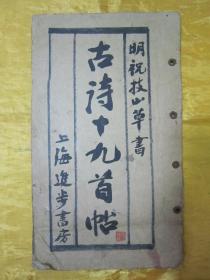 明祝枝山草書
古詩十九首帖
上海進步書局